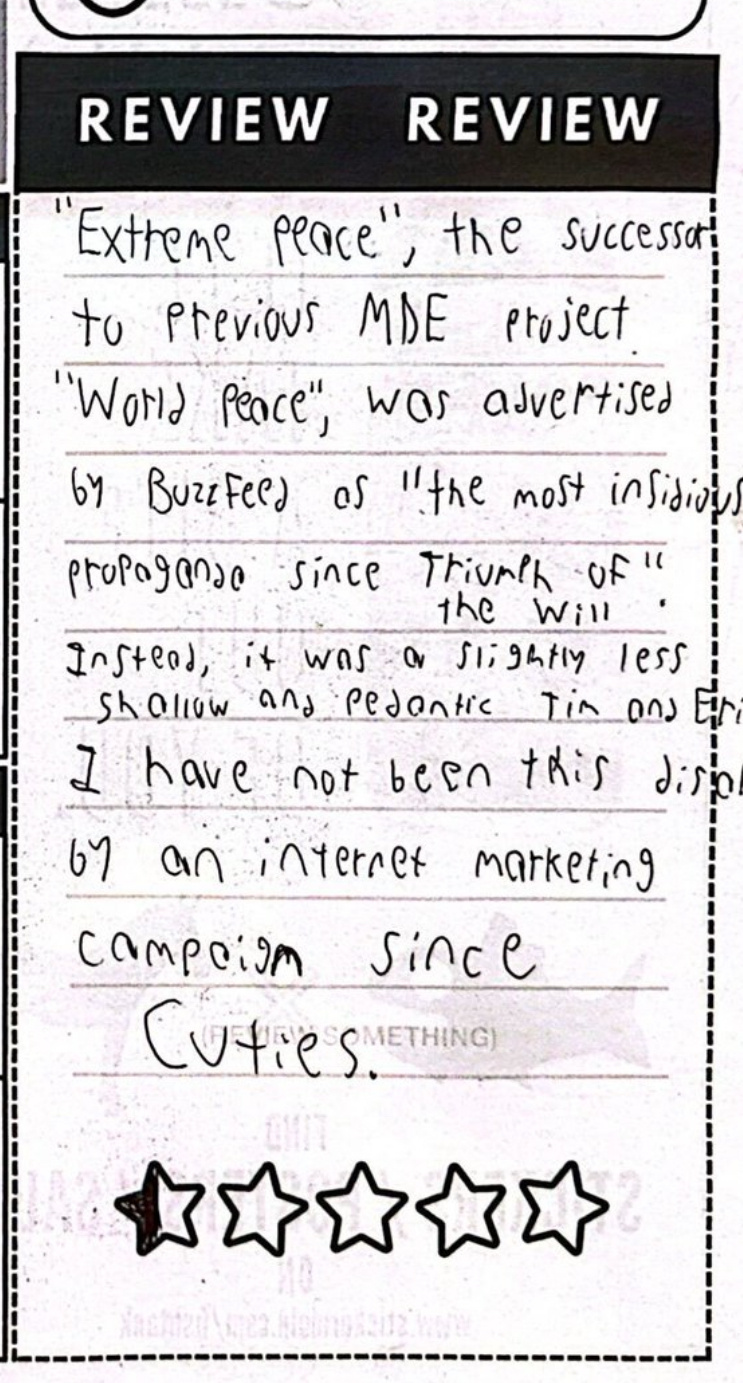 REVIEW REVIEW
"Extreme peace", the successor
to previous MDE project
"World peace", was advertised
by BuzzFeed as "the most insidious
propaganda since Triumph of"
the Will .
Instead, it was a slightly less
shallow and pedantic Tim and Eri
I have not been this
by an internet marketing
campaign since
Cuties.
(REVIEW SOMETHING)
FIND
STICKERS / POSTERS /
ON